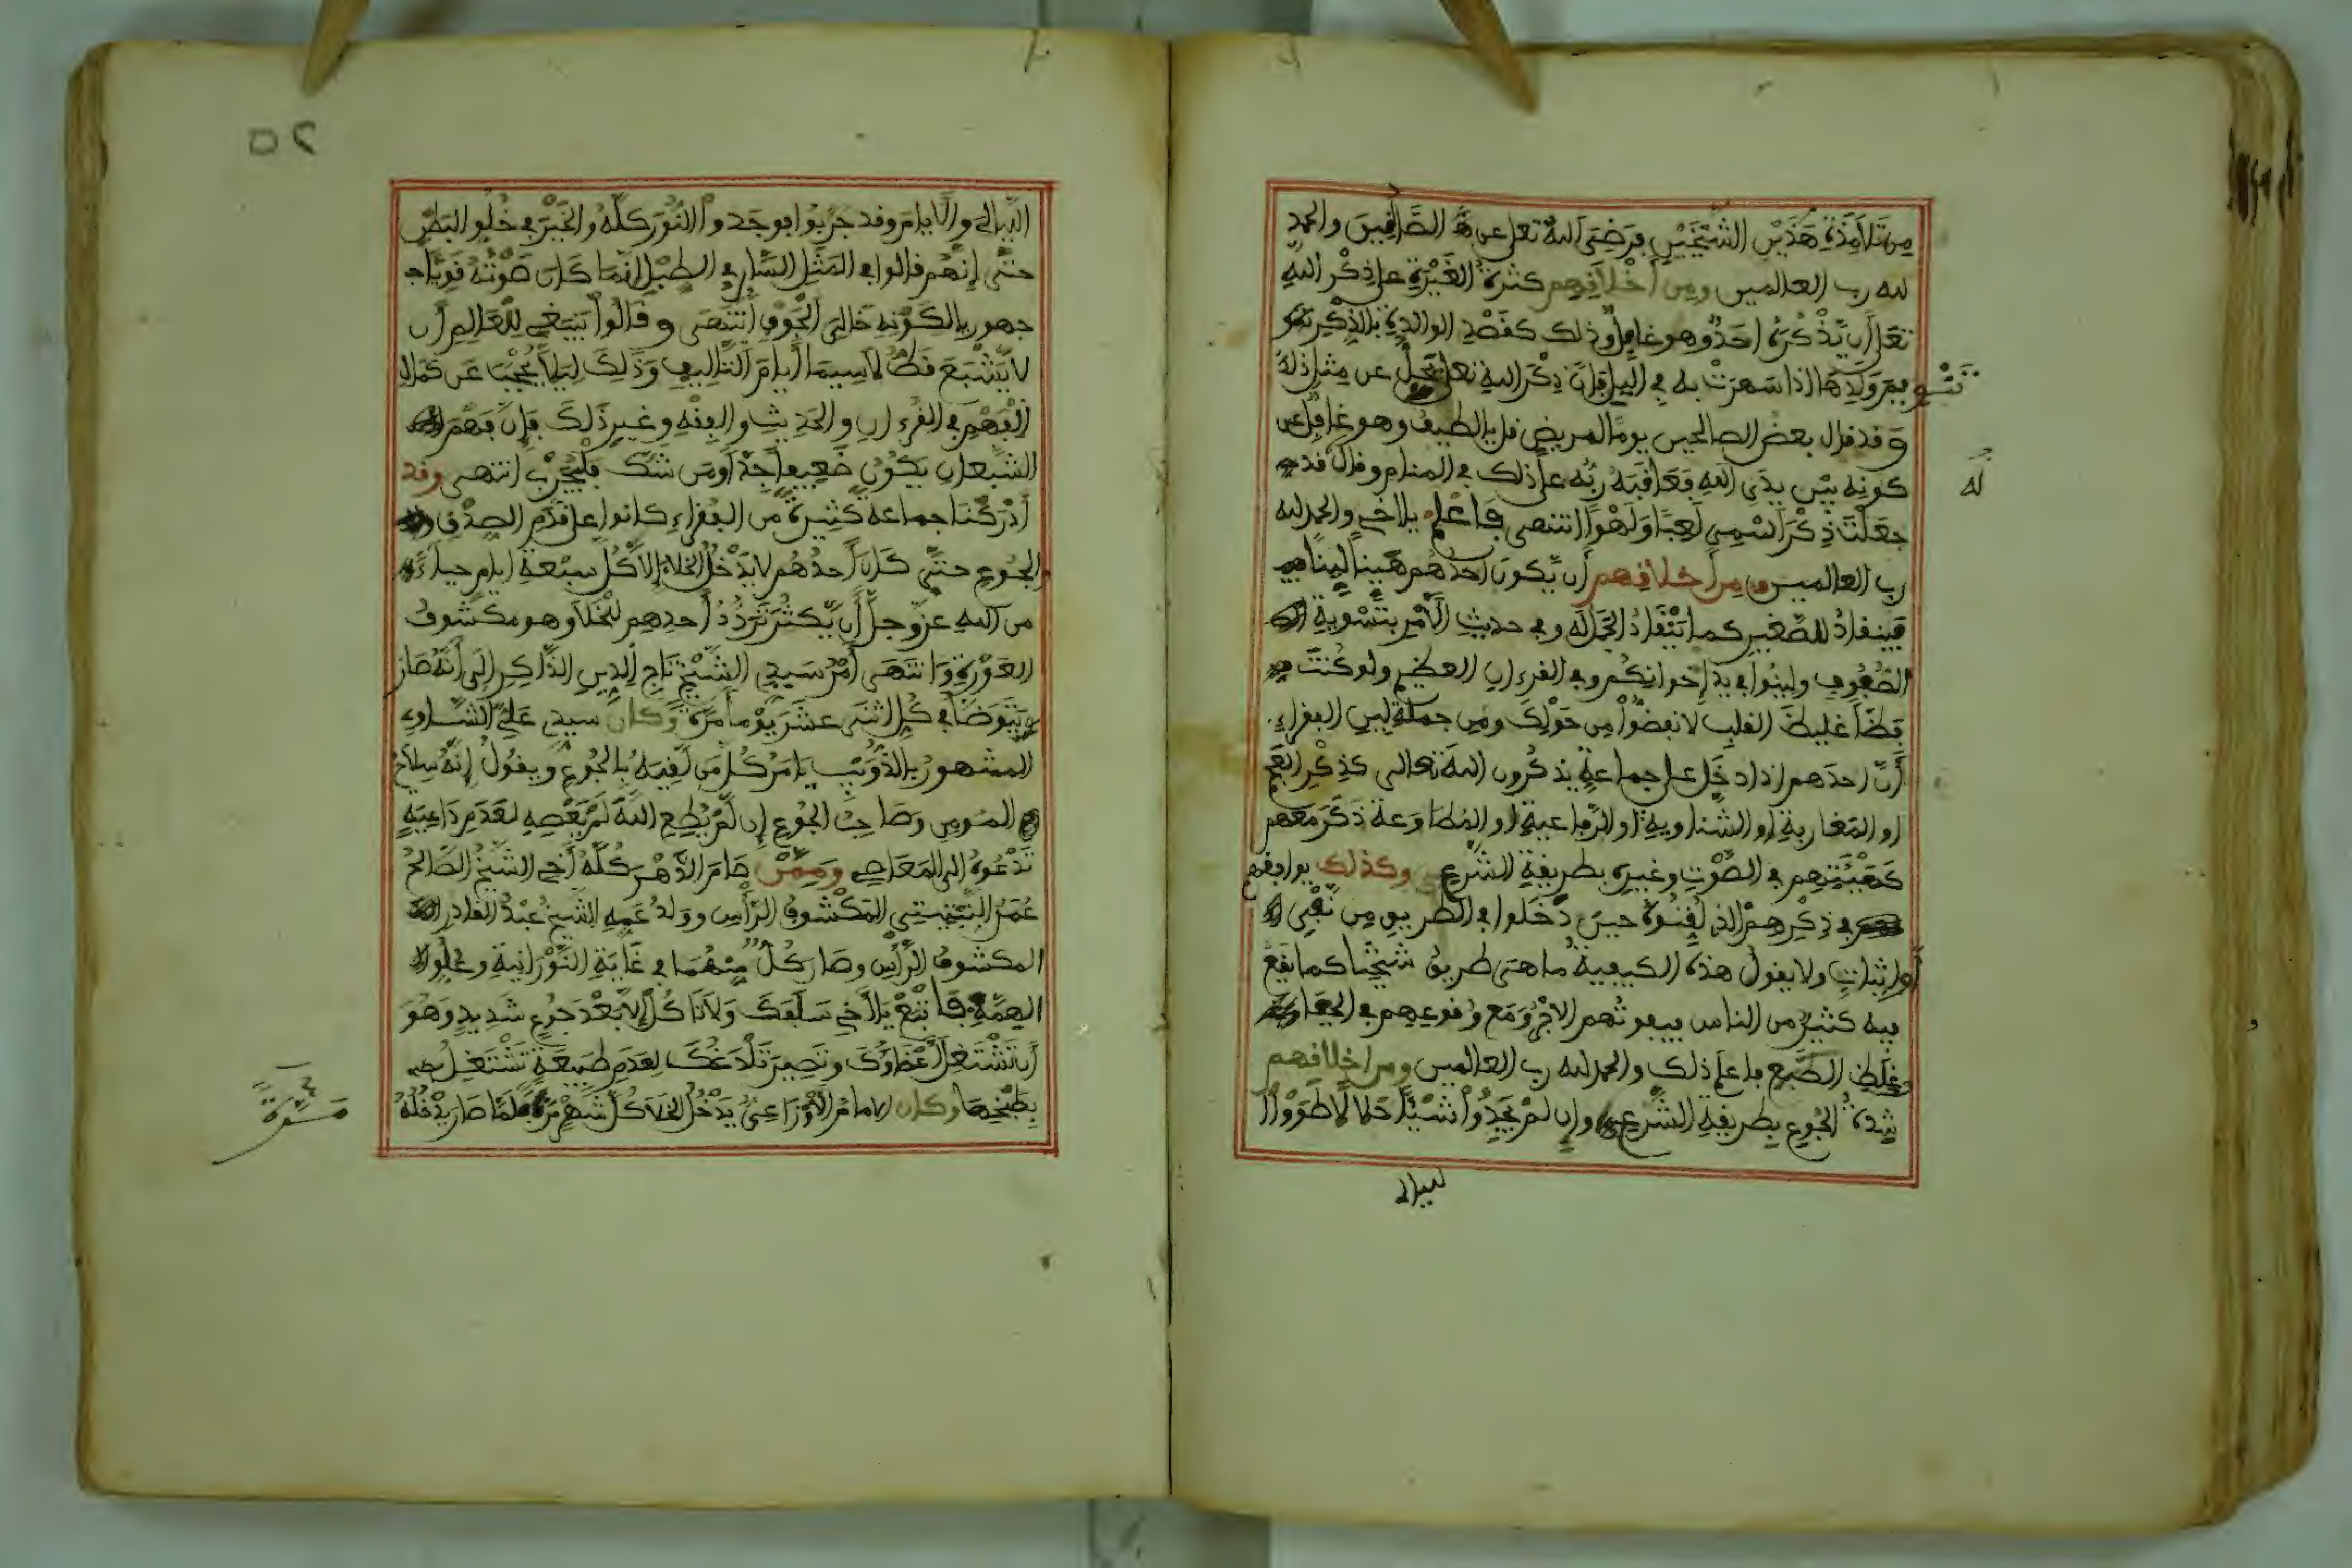 من تلامذة هذين الشيخين فرضي الله تعلى عن الصادقين والحمد
لله رب العالمين ومن أخلاقهم كثرة الغيرة على ذكر الله
تعلى أن يذكره احد وهو غافل وذلك كقصد الوالدة بالذكر
تنويم ولدها اذا سهرت به في اليل فإن ذكر الله تعلى يجل عن مثل ذلك
وقد قال بعض الصالحين يوما لمريض قل يا لطيف وهو غافل عن
كونه بين يدي الله فعاقبه ربه على ذلك في المنام وقال قد
له
جعلت ذكر اسمي لعبا ولهوا انتهى فاعلم يا أخي والحمد لله
رب العالمين ومن اخلاقهم أن يكون احدهم هينا لينا
فينقاد للصغير كما تنقاد الجمال له وفي حديث الأمر بتسوية
الصفوف ولينوا في يد إخوانكم وفي القرءان العظيم ولو كنت
فظا غليظ القلب لانفضوا من حولك ومن جملة لين الفقراء
أن احدهم اذا دخل على جماعة يذكرون الله تعالى كذكر العجم
او المغاربة او الشناوية او الرفاعية او المطاوعة ذكر معهم
كهيئتهم في الصوت وغيره بطريقة الشرعي وكذلك يوافقهم
في ذكرهم الذي لقنوه حين دخلوا في الطريق من نفي
أو إثبات ولا يقول هذه الكيفية ما هي طريق شيخنا كما يقع
فيه كثير من الناس فيفوتهم الاجر مع وقوعهم في الجفا
وغلظ الطبع فاعلم ذلك والحمد لله رب العالمين ومن اخلاقهم
شدة الجوع بطريقة الشرعي وإن لم يجدوا شيئا حلالا طووا
ليالي
٥٢
الليالي والأيام وقد جربوا فوجدوا النور كله والخير في خلو البطن
حتى إنهم قالوا في المثل السار في الطبل إنما كان صوته قويا
جهوريا لكونه خالي الجوف انتهى وقالوا ينبغي للعالم أن
لا يشبع قط لاسيما أيام التأليف وذلك ليلا يحجب عن كمال
الفهم في القرءان والحديث والفقه وغير ذلك فإن فهم
الشبعان يكون ضعيفا جدا ومن شك فليجرب انتهى وقد
أدركنا جماعة كثيرة من الفقراء كانوا على قدم الصدق
الجوع حتى كان أحدهم لا يدخل الخلاء إلا كل سبعة ايام حياء
من الله عز وجل أن يكثر تردد أحدهم للخلا وهو مكشوف
العورة وانتهى أمر سيدي الشيخ تاج الدين الذاكر إلى أنه صار
يتوضأ في كل اثنى عشر يوما مرة وكان سيدي علي الشناوي
المشهور بالذويب يامر كل من لقيه بالجوع ويقول إنه سلاح
المومن وصاحب الجوع إن لم يطع الله لم يعصه لعدم داعية
تدعوه إلى المعاصي وممن صام الدهر كله أخي الشيخ الصالح
عمر النبتيتي المكشوف الرأس وولد عمه الشيخ عبد القادر
المكشوف الرأس وصار كل منهما في غاية النورانية وعلو
الهمة فاتبع يا أخي سلفك ولا تاكل إلا بعد جوع شديد وهو
أن تشتغل أعضاؤك وتصير تلدغك لعدم طبيعة تشتغل
بطبخها وكان الامام الأوزاعي يدخل الخلا كل شهر مرة فلما صار يدخله
مرة